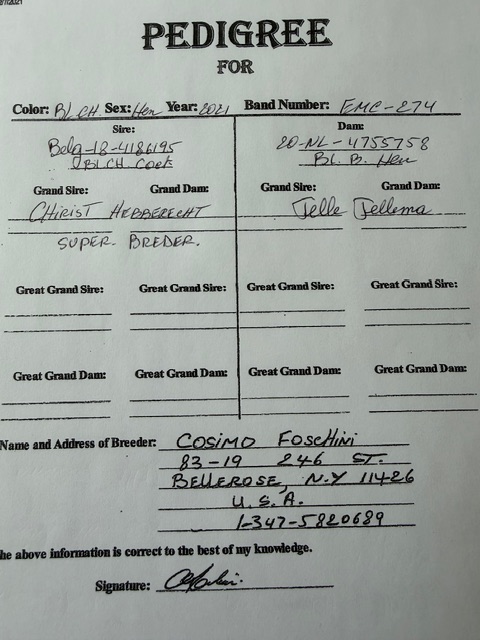 PEDIGREE
FOR
Color: BL CH. Sex: Hen Year: 2021 Band Number: EMC-274
Sire: Dam:
Belg-18-4186195 20-NL-4755758
BL CH. Cock BL. B. Hen
Grand Sire: Grand Dam: Grand Sire: Grand Dam:
CHIRIST HEBBERECHT Jelle Jellema
SUPER BREDER.
Great Grand Sire: Great Grand Dam: Great Grand Sire: Great Grand Dam:
Great Grand Dam: Great Grand Dam: Great Grand Dam: Great Grand Dam:
Name and Address of Breeder: COSIMO FOSCHINI
83-19 246 ST.
BELLEROSE, N.Y 11426
U.S.A.
1-347-5820689
he above information is correct to the best of my knowledge.
Signature: